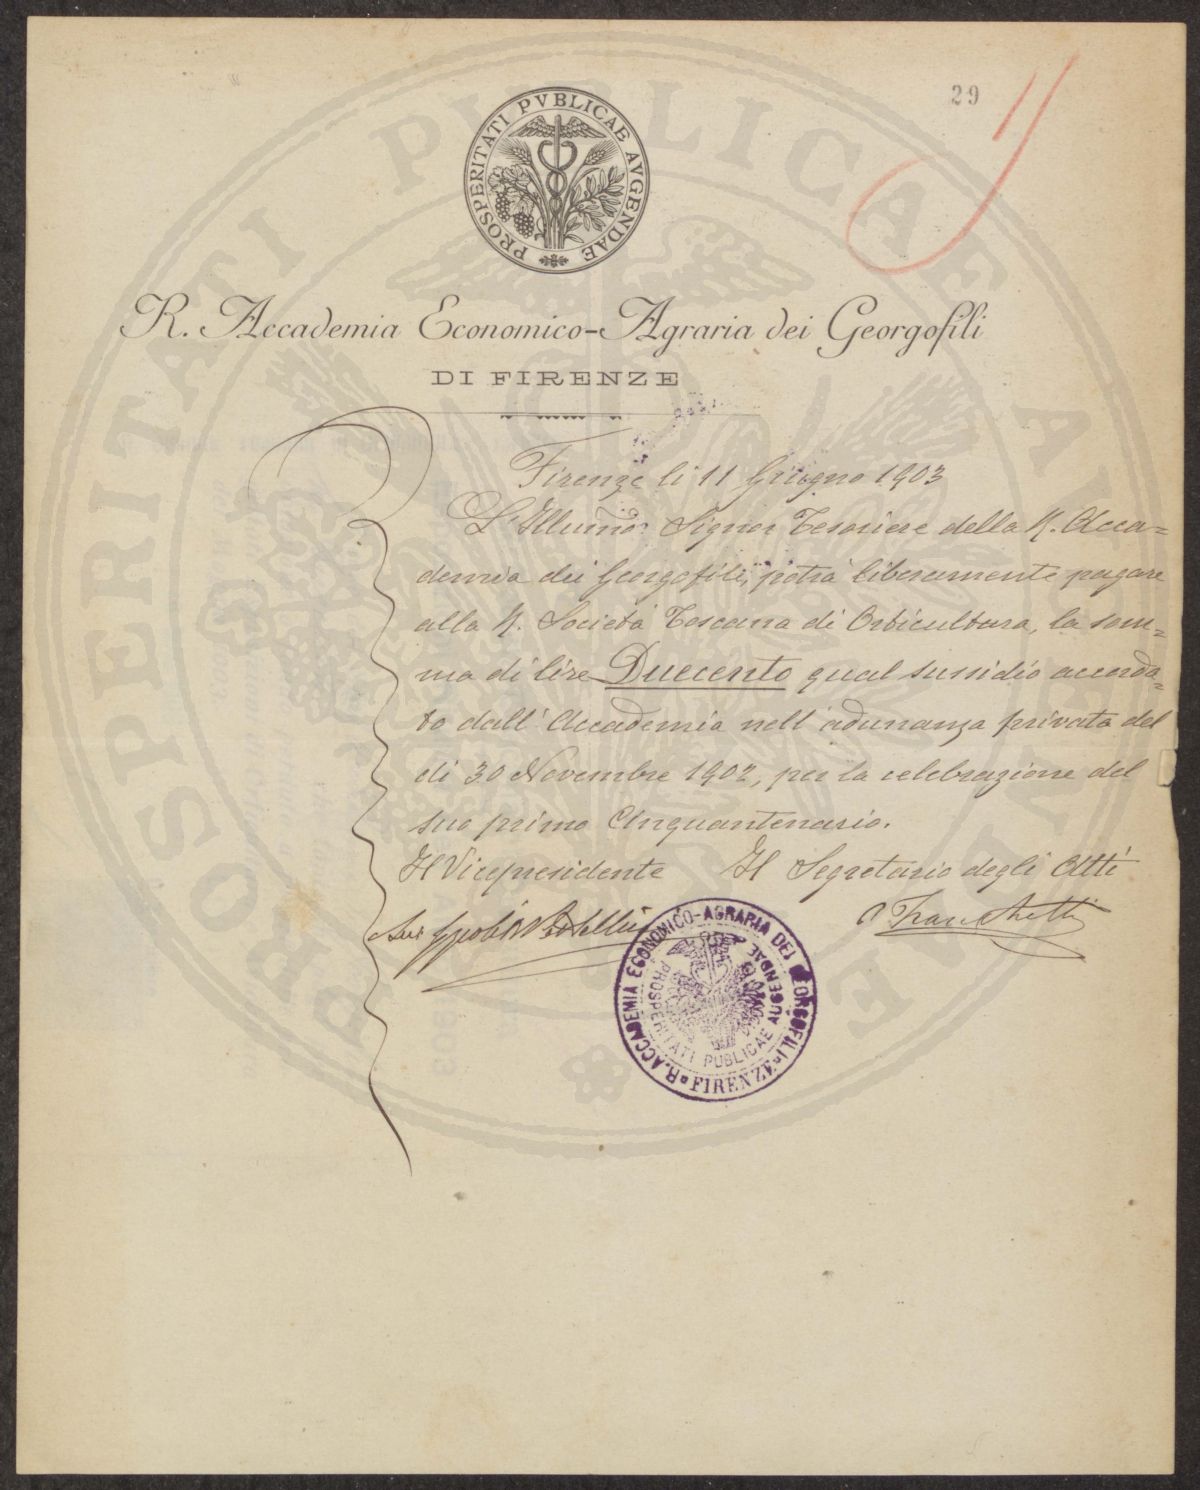 29
PROSPERITATI PVBLICAE AVGENDAE
R. Accademia Economico-Agraria dei Georgofili
DI FIRENZE
Firenze li 11 Giugno 1903
L'Illumo Signor Tesoriere della R. Acca=
demia dei Georgofili, potrà liberamente pagare
alla R. Società Toscana di Orticultura, la som=
ma di lire Duecento qual sussidio accorda=
to dall'Accademia nell'adunanza privata del
di 30 Novembre 1902, per la celebrazione del
suo primo Cinquantenario.
Il Vicepresidente Il Segretario degli Atti
Franchetti
R. ACCADEMIA ECONOMICO-AGRARIA DEI GEORGOFILI
FIRENZE
PROSPERITATI PUBLICAE AUGENDAE
PROSPERITATI PUBLICAE AVGENDAE